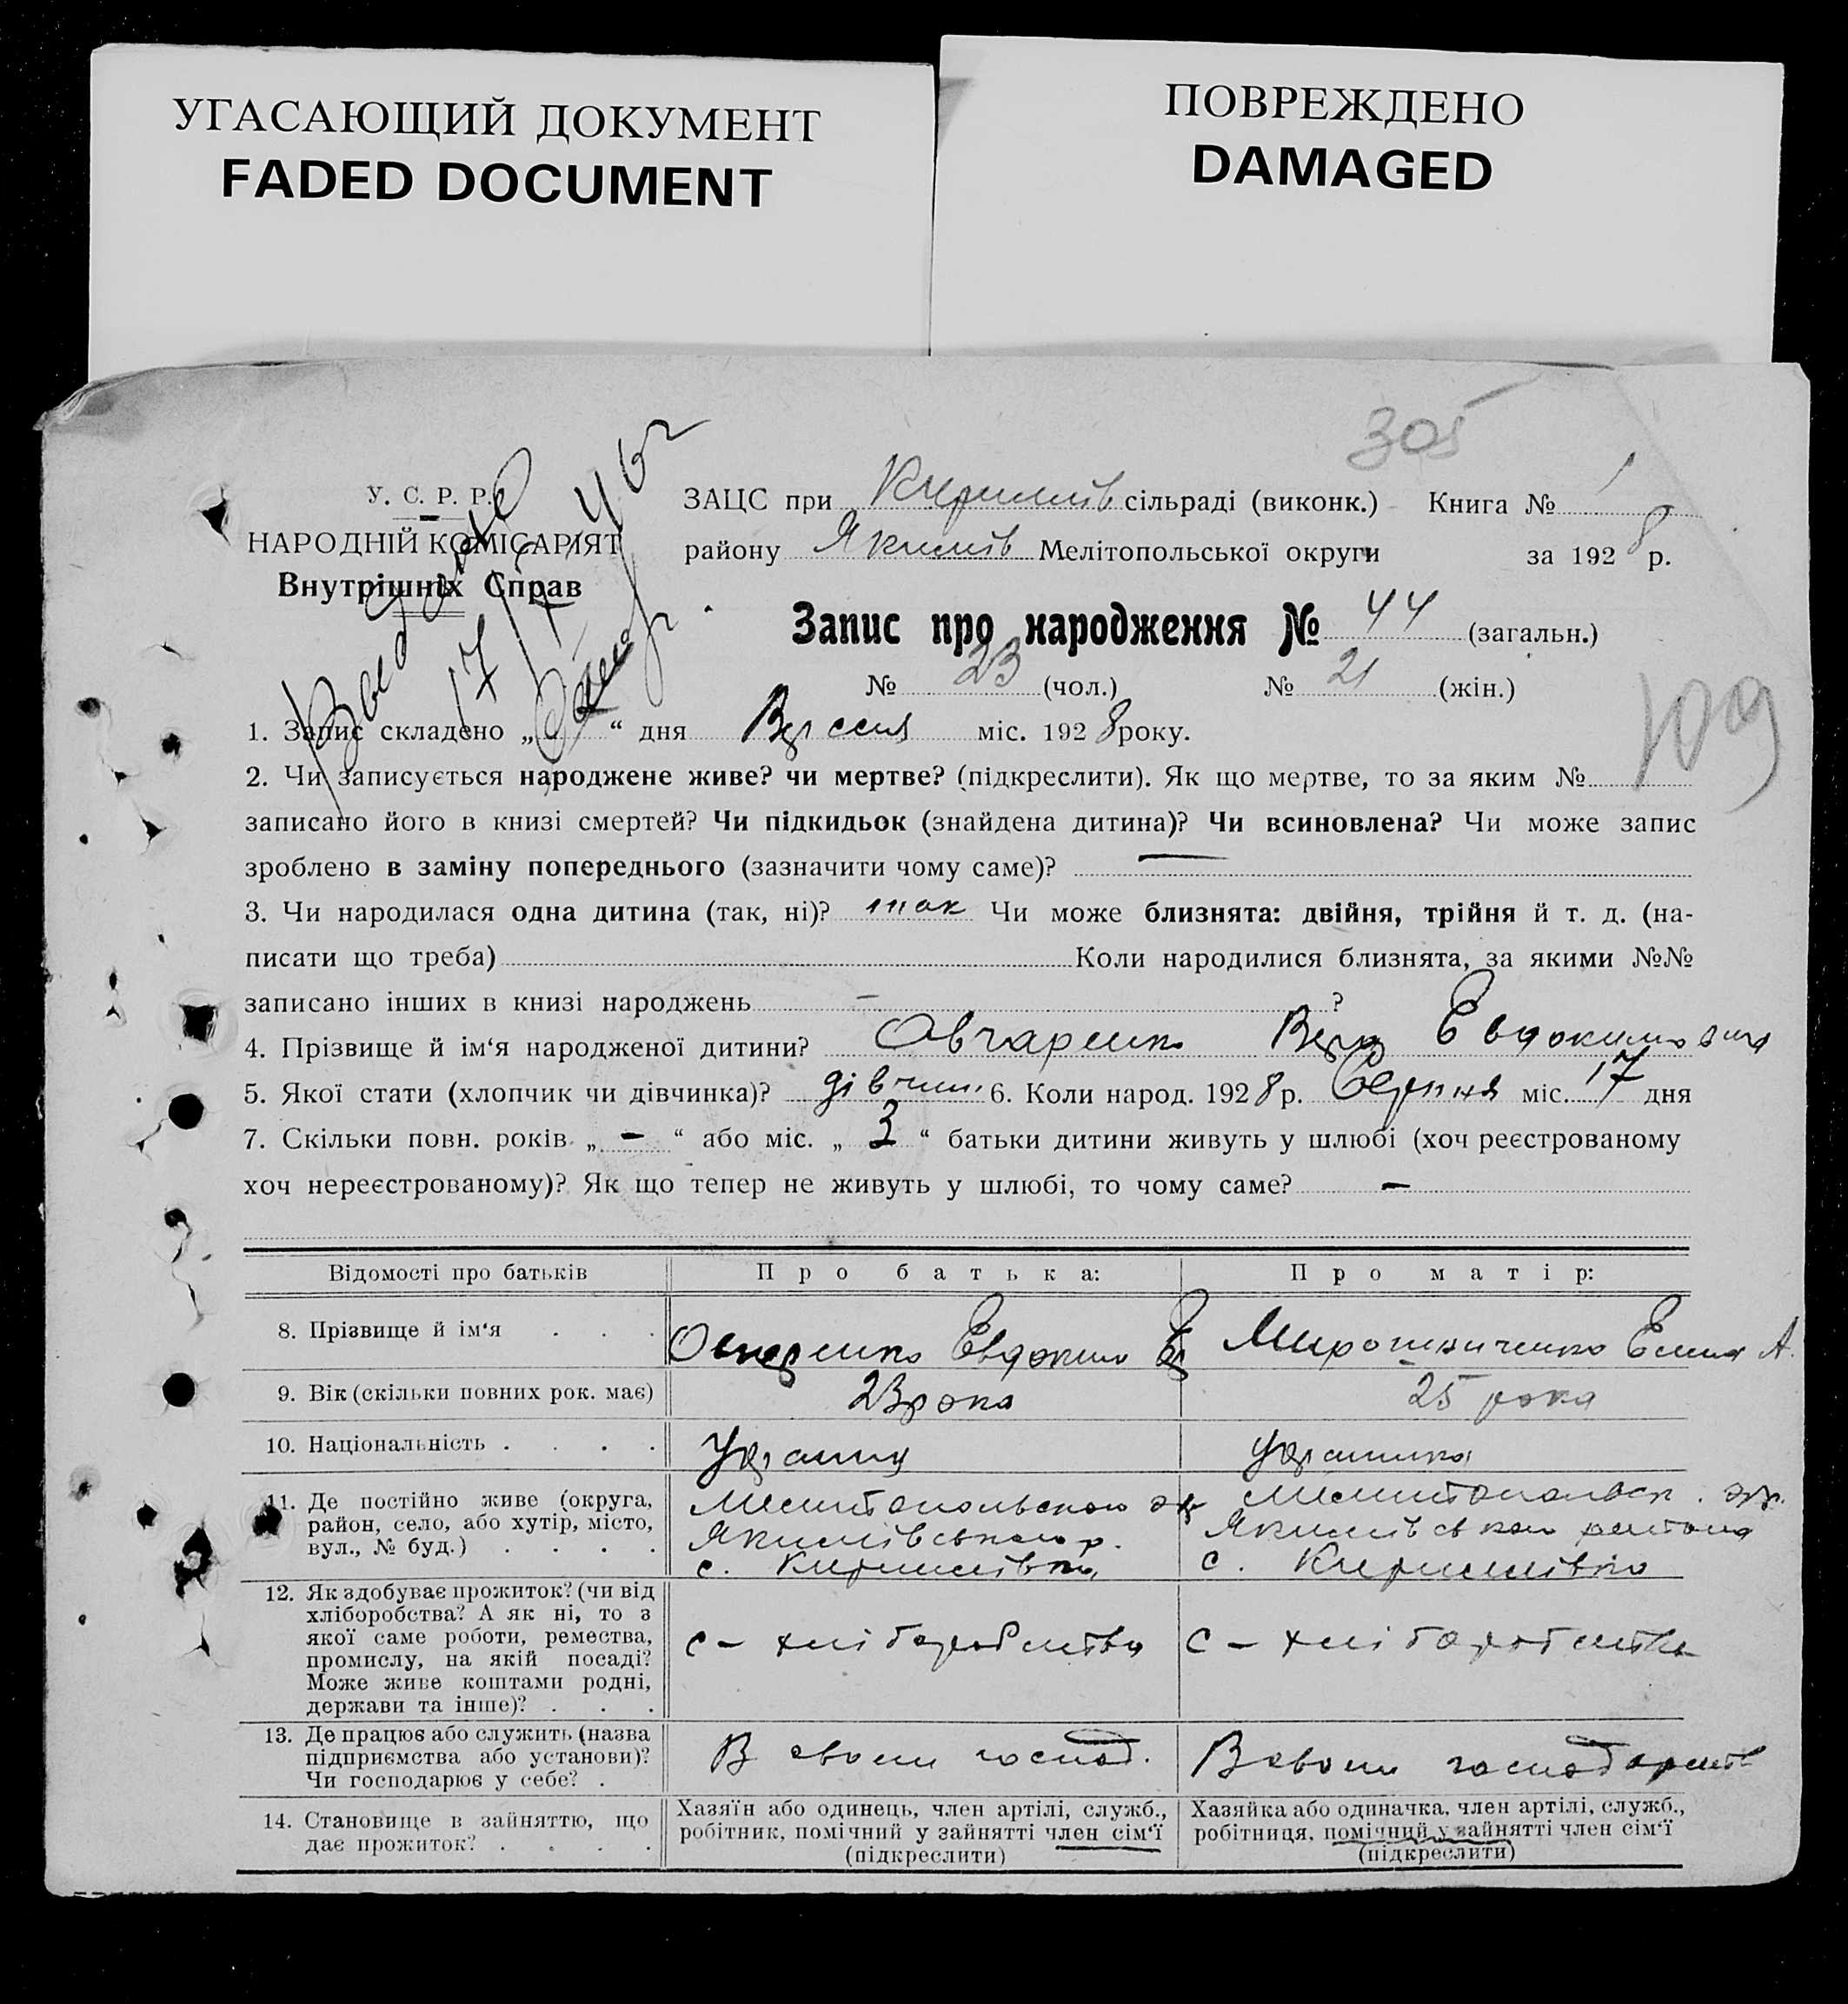 УГАСАЮЩИЙ ДОКУМЕНТ
FADED DOCUMENT
ПОВРЕЖДЕНО
DAMAGED
305
У. С. Р. Р.
НАРОДНІЙ КОМІСАРІЯТ
Внутрішніх Справ
ЗАЦС при Кирилів сільраді (виконк.) Книга № 1
району Якимів Мелітопольської округи за 1928 р.
Запис про народження № 44 (загальн.)
№ 23 (чол.) № 21 (жін.)
109
1. Запис складено „ “ дня Вересня міс. 1928 року.
2. Чи записується народжене живе? чи мертве? (підкреслити). Як що мертве, то за яким №
записано його в книзі смертей? Чи підкидьок (знайдена дитина)? Чи всиновлена? Чи може запис
зроблено в заміну попереднього (зазначити чому саме)? —
3. Чи народилася одна дитина (так, ні)? так Чи може близнята: двійня, трійня й т. д. (на-
писати що треба) Коли народилися близнята, за якими №№
записано інших в книзі народжень — ?
4. Прізвище й ім‘я народженої дитини? Овчаренко Вера Евдокимовна
5. Якої стати (хлопчик чи дівчинка)? дівчин 6. Коли народ. 1928 р. Серпня міс. 17 дня
7. Скільки повн. років „ — “ або міс. „ 3 “ батьки дитини живуть у шлюбі (хоч реєстрованому
хоч нереєстрованому)? Як що тепер не живуть у шлюбі, то чому саме? —
Відомості про батьків Про батька: Про матір:
8. Прізвище й ім‘я . . . Евдоким Мирошниченко А.
9. Вік (скільки повних рок. має) 23 рока 25 рока
10. Національність . . . . Україниц українка
11. Де постійно живе (округа, район, село, або хутір, місто, вул., № буд.) . . . .
Мелітопольскою окр Якимівського р. с. Кирилівка
Мелитопольск. окр. Якимівського району с. Кирилівка
12. Як здобуває прожиток? (чи від хліборобства? А як ні, то з якої саме роботи, ремества, промислу, на якій посаді? Може живе коштами родні, держави та інше)? . . .
с – хліборобства
с – хліборобства
13. Де працює або служить (назва підприємства або установи)? Чи господарює у себе? .
В своем господ.
В своем господарстві
14. Становище в зайняттю, що дає прожиток? . . . .
Хазяїн або одинець, член артілі, служб., робітник, помічний у зайнятті член сім‘ї (підкреслити)
Хазяйка або одиначка, член артілі, служб., робітниця, помічний у зайнятті член сім‘ї (підкреслити)